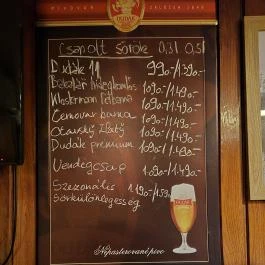 DUDÁK
Csapolt Sörök 0,3l 0,5l
Dudák 11 990.-/1.390.-
Bakalář hidegkomlós 1090.-/1.490.-
Klostermann félbarna 1090.-/1.490.-
Černovar barna 1090.-/1.490.-
Otavský Zlatý 1090.-/1.490.-
Dudák premium 1090.-/1.490.-
Vendégcsap 1.090.-/1.490.-
Szezonális 1.190.-/1.590.-
Sörkülönlegesség
DUDÁK
Nepasterované pivo